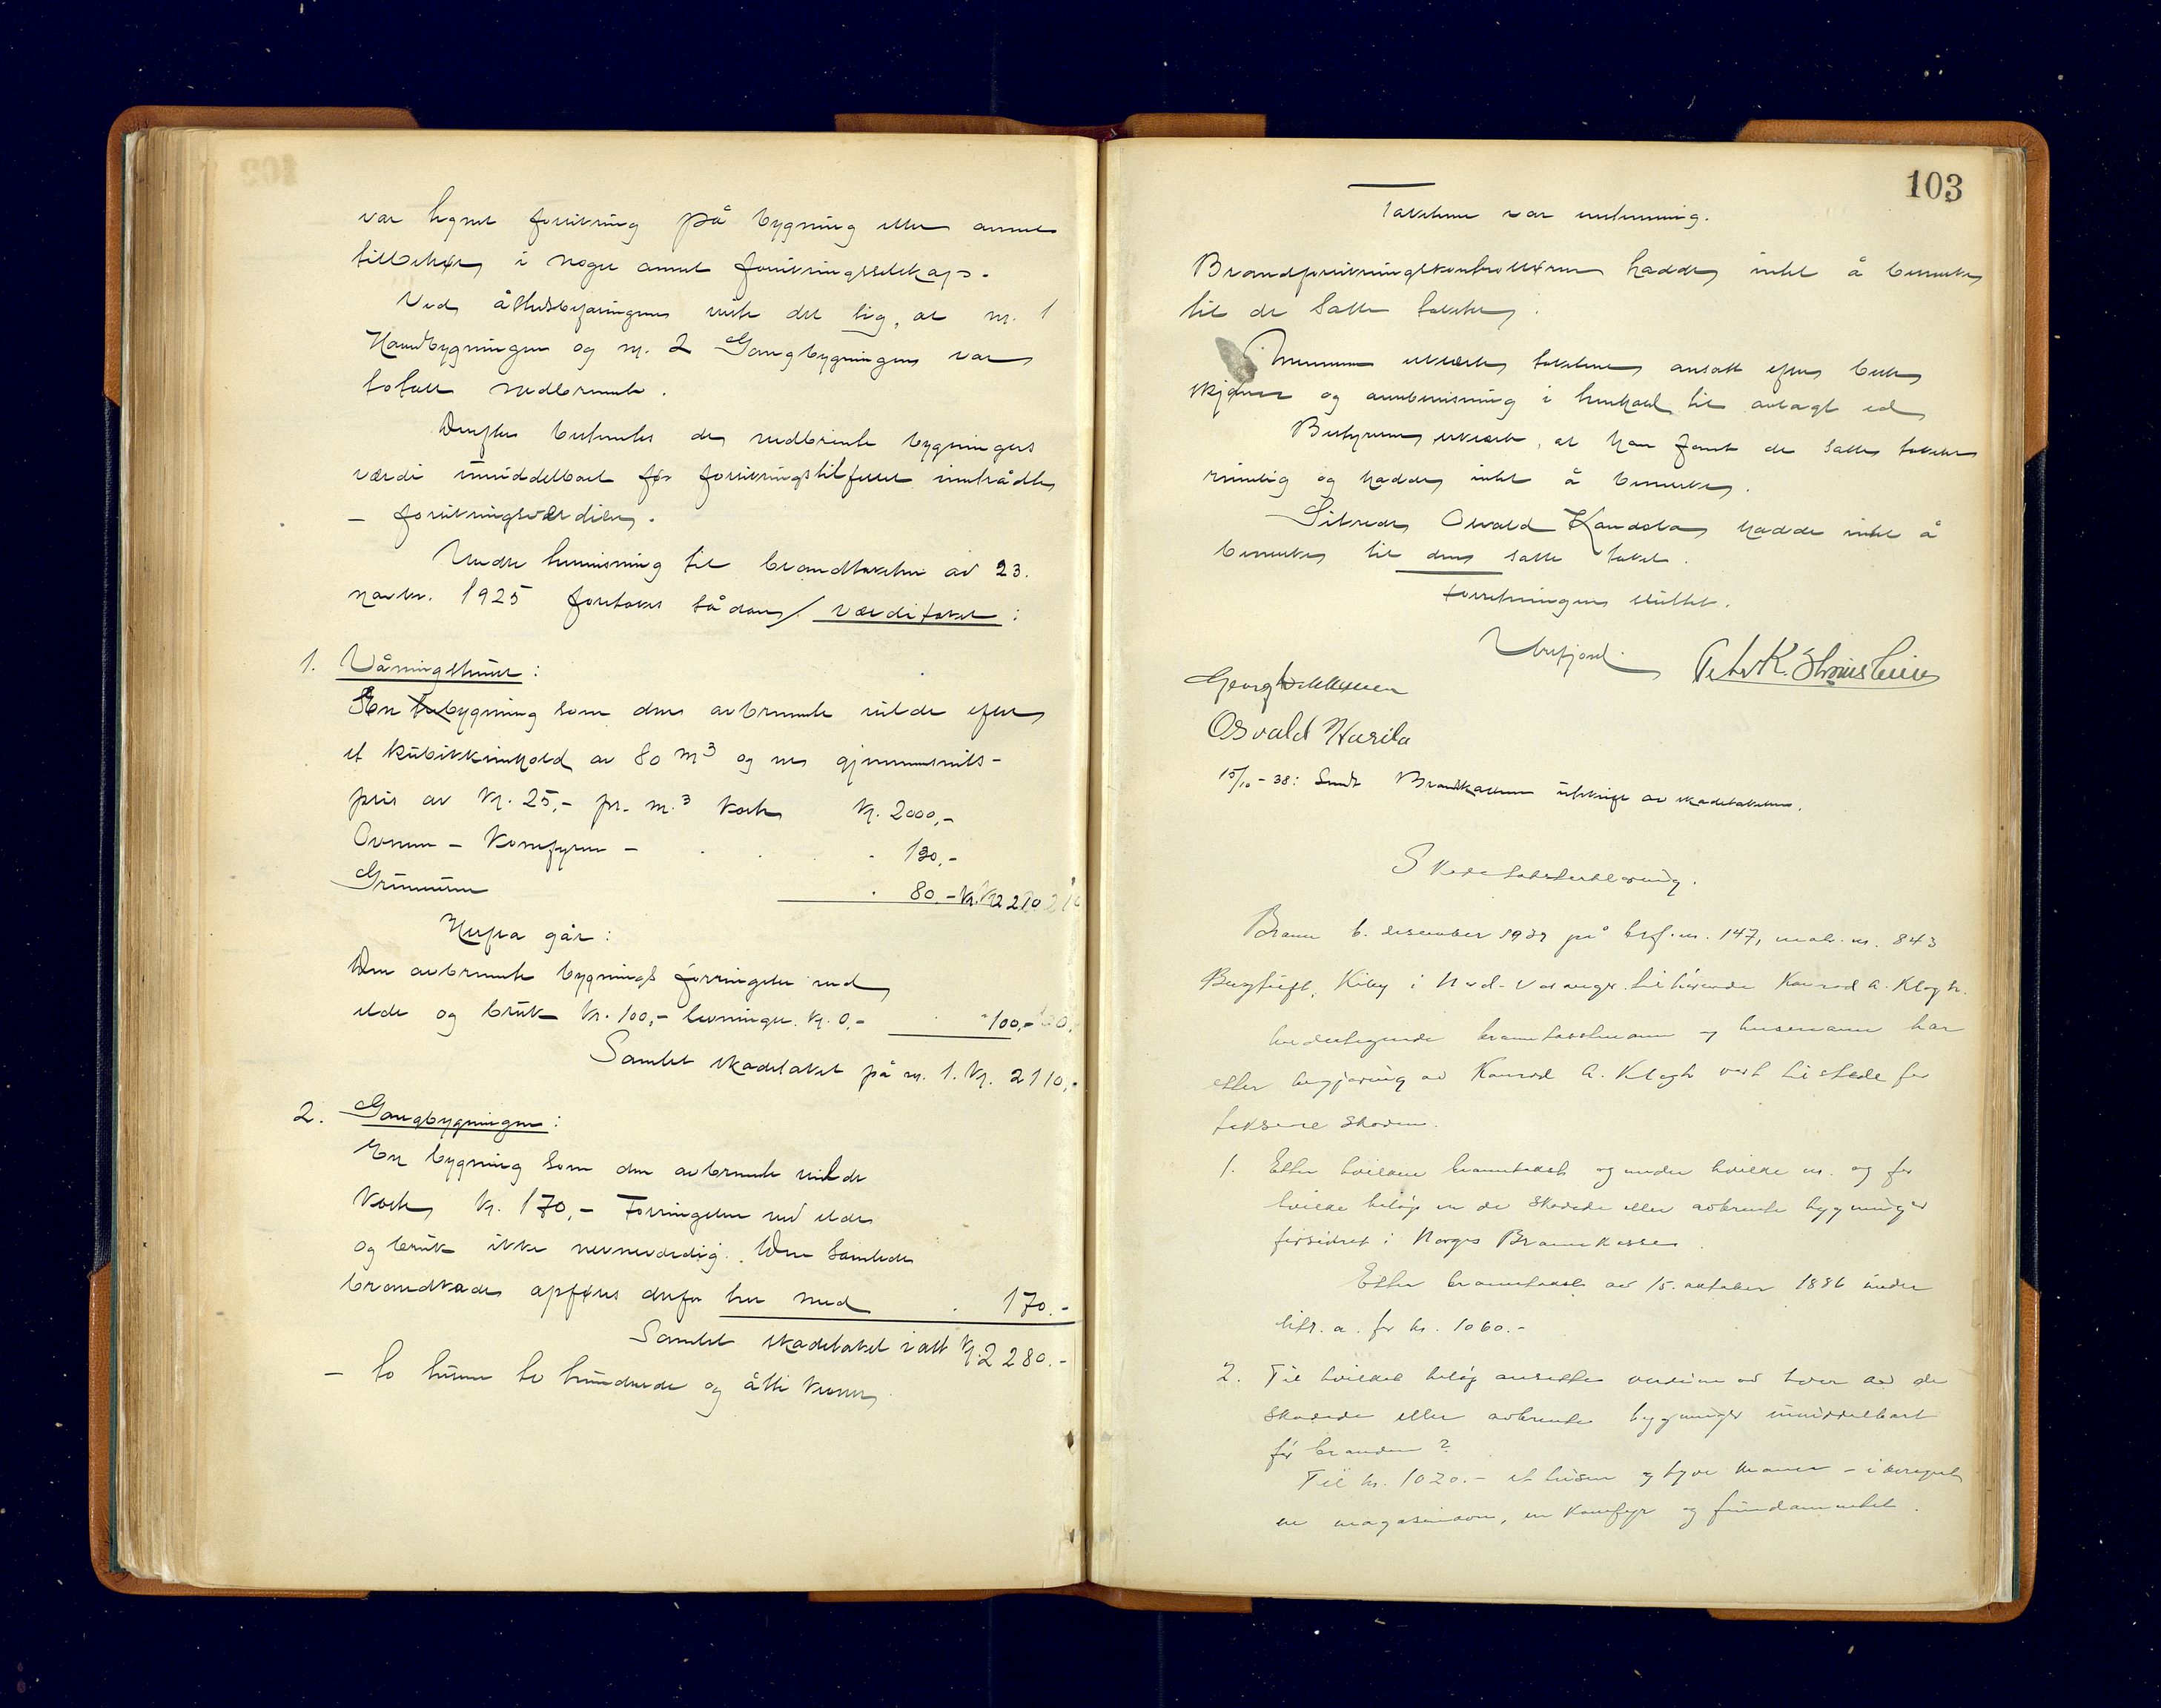 var tegnet forsikring på bygning eller annet
tilbehør i noget annet forsikringsselskap.
Ved åstedsbefaringen viste det sig, at nr. 1
Hovedbygningen og nr. 2 Gangbygningen var
totalt nedbrændt.
Derefter bestemtes de nedbrænte bygningers
værdi umiddelbart før forsikringstilfellet inntrådte
– forsikringsværdien.
Under henvisning til brandtaksten av 23.
novbr. 1925 foretokes sådan værditakst:
1. Våningshuset:
En bygning som den avbrænte vilde efter
et kubikkinhold av 80 m³ og en gjennemsnits-
pris av kr. 25,- pr. m.³ koste kr. 2000,-
Ovnen – Komfyren – 130.-
Grunmuren 80.- kr. 2210
Herfra går:
Den avbrænte bygnings forringelse ved
elde og bruk kr. 100,- levninger kr. 0,- 100,-
Samlet skadetakst på nr. 1. kr. 2110,-
2. Gangbygningen:
En bygning som den avbrænte vilde
koste kr. 170,- Forringelsen ved elde
og bruk ikke nevneverdig. Den samlede
brandskade opføres derfor her med 170.-
Samlet skadetakst i alt kr. 2280.-
– to tusen to hundrede og åtti kroner
103
Taksten var enstemmig.
Brandforsikringskontrolløren hadde intet å bemerke
til de satte takster.
Mennene erklærte takstene ansatt efter beste
skjønn og overbevisning i henhold til avlagt ed
Bestyreren erklærte, at han fant de satte takster
rimelig og hadde intet å bemerke.
Sitrede Osvald Kandola hadde intet å
bemerke til den satte takst.
Forretningen sluttet.
Vesfjord. Peter K.
Georg
Osvald Harila
15/10-38: Sendt Brandkassen utskrift av skadetaksten.
Skadetakstforklaring.
Brann 6. desember 1939 på brf.nr. 147, matr. nr. 843
Bergtuft, Kiby i Nord-Varanger tilhørende Konrad A. Klogh.
Undertegnede branntakstmann og husemann har
etter begjæring av Konrad A. Klogh vært tilstede for
taksere skaden.
1. Etter hvilken branntakst og under hvilke nr. og for
hvilke beløp er de skadede eller avbrente bygninger
forsikret i Norges Brannkasse.
Etter branntakst av 15. oktober 1886 under
litr. a. for kr. 1060.-
2. Til hvilket beløp ansettes verdien av hver av de
skadede eller avbrente bygninger umiddelbart
før branden?
Til kr. 1020.- et tusen og tyve kroner – iberegnet
en magasinovn, en komfyr og fundamentet.